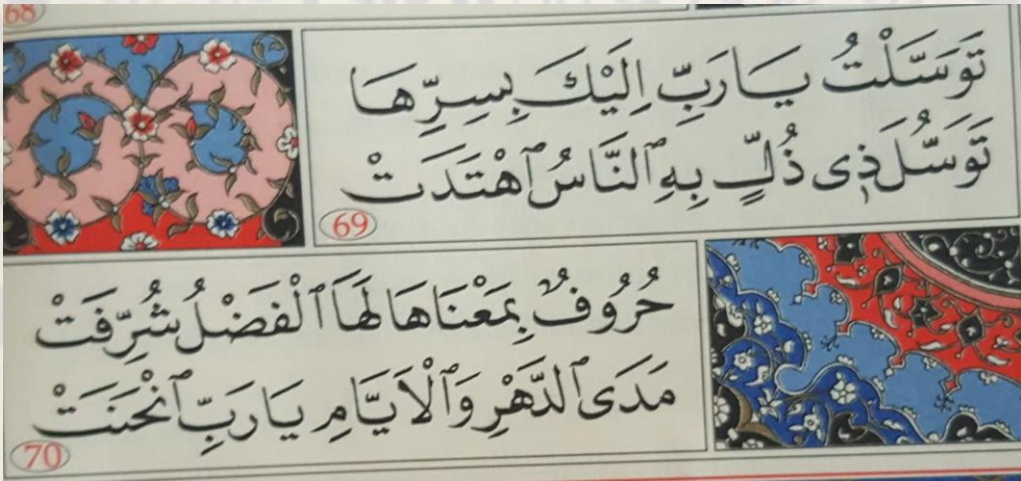 68
تَوَسَّلْتُ يَا رَبِّ اِلَيْكَ بِسِرِّهَا
تَوَسُّلَ ذِى ذُلٍّ بِهِ ٱلنَّاسُ ٱهْتَدَتْ
69
حُرُوفٌ بِمَعْنَاهَا لَهَا ٱلْفَضْلُ شُرِّفَتْ
مَدَى ٱلدَّهْرِ وَٱلْاَيَّامِ يَا رَبِّ ٱنْحَنَتْ
70